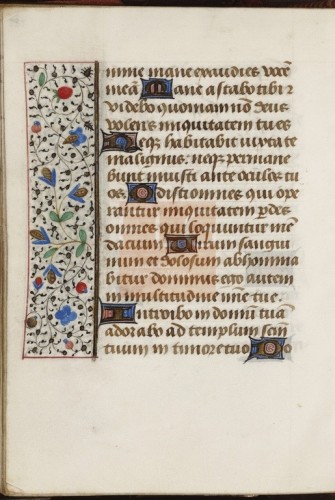 mine mane exaudies vocē
meā Mane astabo tibi et
videbo quoniam nō deus
volens iniquitatem tu es
Neq; habitabit iuxta te
malignus: neq; permane
bunt iniusti ante oculos tu
os. Odisti omnes qui ope
rantur iniquitatem p̄des
omnes qui loquuntur men
dacium Virum sangui
num et dolosum abhomina
bitur dominus ego autem
in multitudine mīe tue.
Introibo in domū tuā
adorabo ad templum scm̄
tuum in timore tuo Do